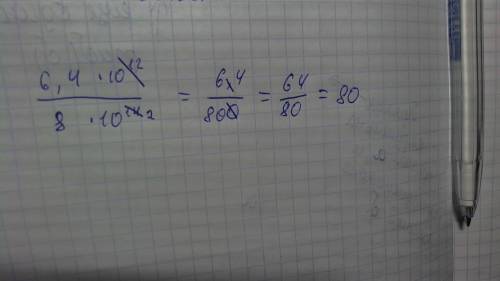 6,4 · 10^12 / 8 · 10^14 2 = 6,4 / 800 = 64 / 80 = 80